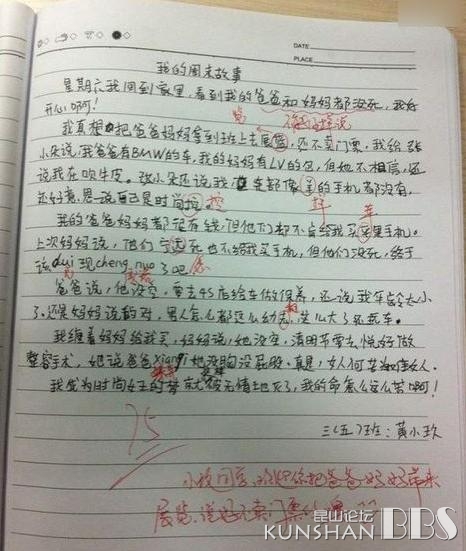 DATE
PLACE
我的周末故事
星期六我回到家里,看到我的爸爸和妈妈都没死,我好
开心啊!
我真想把爸爸妈妈拿到班上去展
览
,还不卖门票,我给张
小朵说,我爸爸有BMW的车,我的妈妈有LV的包,但她不相信,还
说我在吹牛皮。张小朵还说我
车都像
的手机都没有,
还好意思说自己是时尚
控
我的爸爸妈妈都很有钱,但他们都不肯给我买苹果手机。
苹
上次妈妈说,他们宁
死也不给我买手机,但他们没死,终于
该dui现cheng nuo了吧
爸爸说,他没空,要去4S店给车做保养,还说我年龄太小
了。还是妈妈说的对,男人怎么都这么幼
稚
,这么大了还玩车。
我缠着妈妈给我买,妈妈说,她没空,清明节要去悦好做
整容手术,她说爸爸xianqi她没胸没屁股。真是,女人何苦为难女人。
我成为时尚女王的梦就被无情地灭了,我的命怎么这么苦啊!
75
三(五)班:黄小玖
小玖同学,欢迎你把爸爸妈妈带来
展览,说好不卖门票的
昆山论坛
KUNSHAN BBS